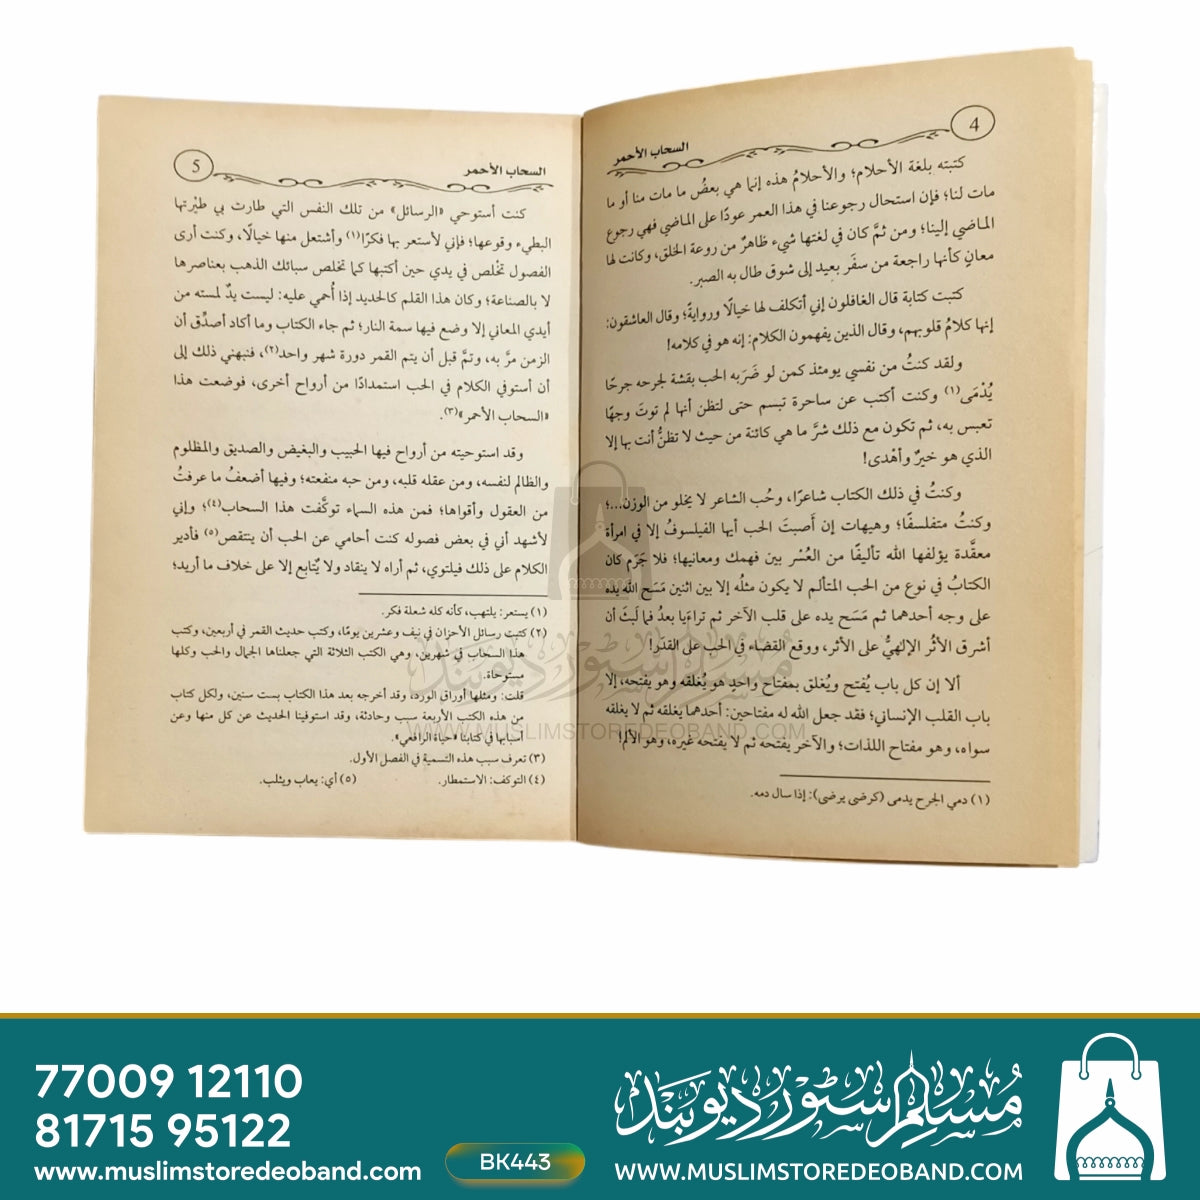 4
السحاب الأحمر
كتبته بلغة الأحلام؛ والأحلامُ هذه إنما هي بعضُ ما مات منا أو ما
مات لنا؛ فإن استحال رجوعنا في هذا العمر عودًا على الماضي فهي رجوع
الماضي إلينا؛ ومن ثمَّ كان في لغتها شيء ظاهرٌ من روعة الخلق، وكانت لها
معانٍ كأنها راجعة من سفَر بعيد إلى شوق طال به الصبر.
كتبت كتابة قال الغافلون إني أتكلف لها خيالًا وروايةً؛ وقال العاشقون:
إنها كلامُ قلوبهم، وقال الذين يفهمون الكلام: إنه هو في كلامه!
ولقد كنتُ من نفسي يومئذ كمن لو ضَرَبه الحب بقشة لجرحه جرحًا
يُدْمَى(١) وكنت أكتب عن ساحرة تبسم حتى لتظن أنها لم توتَ وجهًا
تعبس به، ثم تكون مع ذلك شرَّ ما هي كائنة من حيث لا تظنُّ أنت بها إلا
الذي هو خيرٌ وأهْدى!
وكنتُ في ذلك الكتاب شاعرًا، وحُب الشاعر لا يخلو من الوزن...؛
وكنتُ متفلسفًا؛ وهيهات إن أَصبتَ الحب أيها الفيلسوفُ إلا في امرأة
معقَّدة يؤلفها الله تأليفًا من العُسْر بين فهمك ومعانيها؛ فلا جَرَم كان
الكتابُ في نوع من الحب المتألم لا يكون مثلُه إلا بين اثنين مَسَح الله يده
على وجه أحدهما ثم مَسَح يده على قلب الآخر ثم تراءَيا بعدُ فما لَبثَ أن
أشرق الأثرُ الإلهيُّ على الأثر، ووقع القضاء في الحب على القدَر!
ألا إن كل باب يُفتح ويُغلق بمفتاح واحدٍ هو يُغلقه وهو يفتحه، إلا
باب القلب الإنساني؛ فقد جعل الله له مفتاحين: أحدهما يغلقه ثم لا يغلقه
سواه، وهو مفتاح اللذات؛ والآخر يفتحه ثم لا يفتحه غيره، وهو الألم!
(١) دمي الجرح يدمى (كرضى يرضى): إذا سال دمه.
5
السحاب الأحمر
كنت أستوحي «الرسائل» من تلك النفس التي طارت بي طيْرتها
البطيء وقوعها؛ فإني لأستعر بها فكرًا(١) وأشتعل منها خيالًا، وكنت أرى
الفصول تخْلص في يدي حين أكتبها كما تخلص سبائك الذهب بعناصرها
لا بالصناعة؛ وكان هذا القلم كالحديد إذا أُحمي عليه: ليست يدٌ لمسته من
أيدي المعاني إلا وضع فيها سمة النار؛ ثم جاء الكتاب وما أكاد أصدِّق أن
الزمن مرَّ به، وتمَّ قبل أن يتم القمر دورة شهر واحد(٢)، فنبهني ذلك إلى
أن أستوفي الكلام في الحب استمدادًا من أرواح أخرى، فوضعت هذا
«السحاب الأحمر»(٣).
وقد استوحيته من أرواح فيها الحبيب والبغيض والصديق والمظلوم
والظالم لنفسه، ومن عقله قلبه، ومن حبه منفعته؛ وفيها أضعفُ ما عرفتُ
من العقول وأقواها؛ فمن هذه السماء توكَّفت هذا السحاب(٤)؛ وإني
لأشهد أني في بعض فصوله كنت أحامي عن الحب أن ينتقص(٥) فأدير
الكلام على ذلك فيلتوي، ثم أراه لا ينقاد ولا يُتابع إلا على خلاف ما أريد؛
(١) يستعر: يلتهب، كأنه كله شعلة فكر.
(٢) كتبت رسائل الأحزان في نيف وعشرين يومًا، وكتب حديث القمر في أربعين، وكتب
هذا السحاب في شهرين، وهي الكتب الثلاثة التي جعلناها الجمال والحب وكلها
مستوحاة.
قلت: ومثلها أوراق الورد، وقد أخرجه بعد هذا الكتاب بست سنين، ولكل كتاب
من هذه الكتب الأربعة سبب وحادثة، وقد استوفينا الحديث عن كل منها وعن
أسبابها في كتابنا «حياة الرافعي».
(٣) تعرف سبب هذه التسمية في الفصل الأول.
(٤) التوكف: الاستمطار. (٥) أي: يعاب ويثلب.
مسلم سٹور دیوبند
WWW.MUSLIMSTOREDEOBAND.COM
77009 12110
81715 95122
www.muslimstoredeoband.com
BK443
مسلم سٹور دیوبند
WWW.MUSLIMSTOREDEOBAND.COM